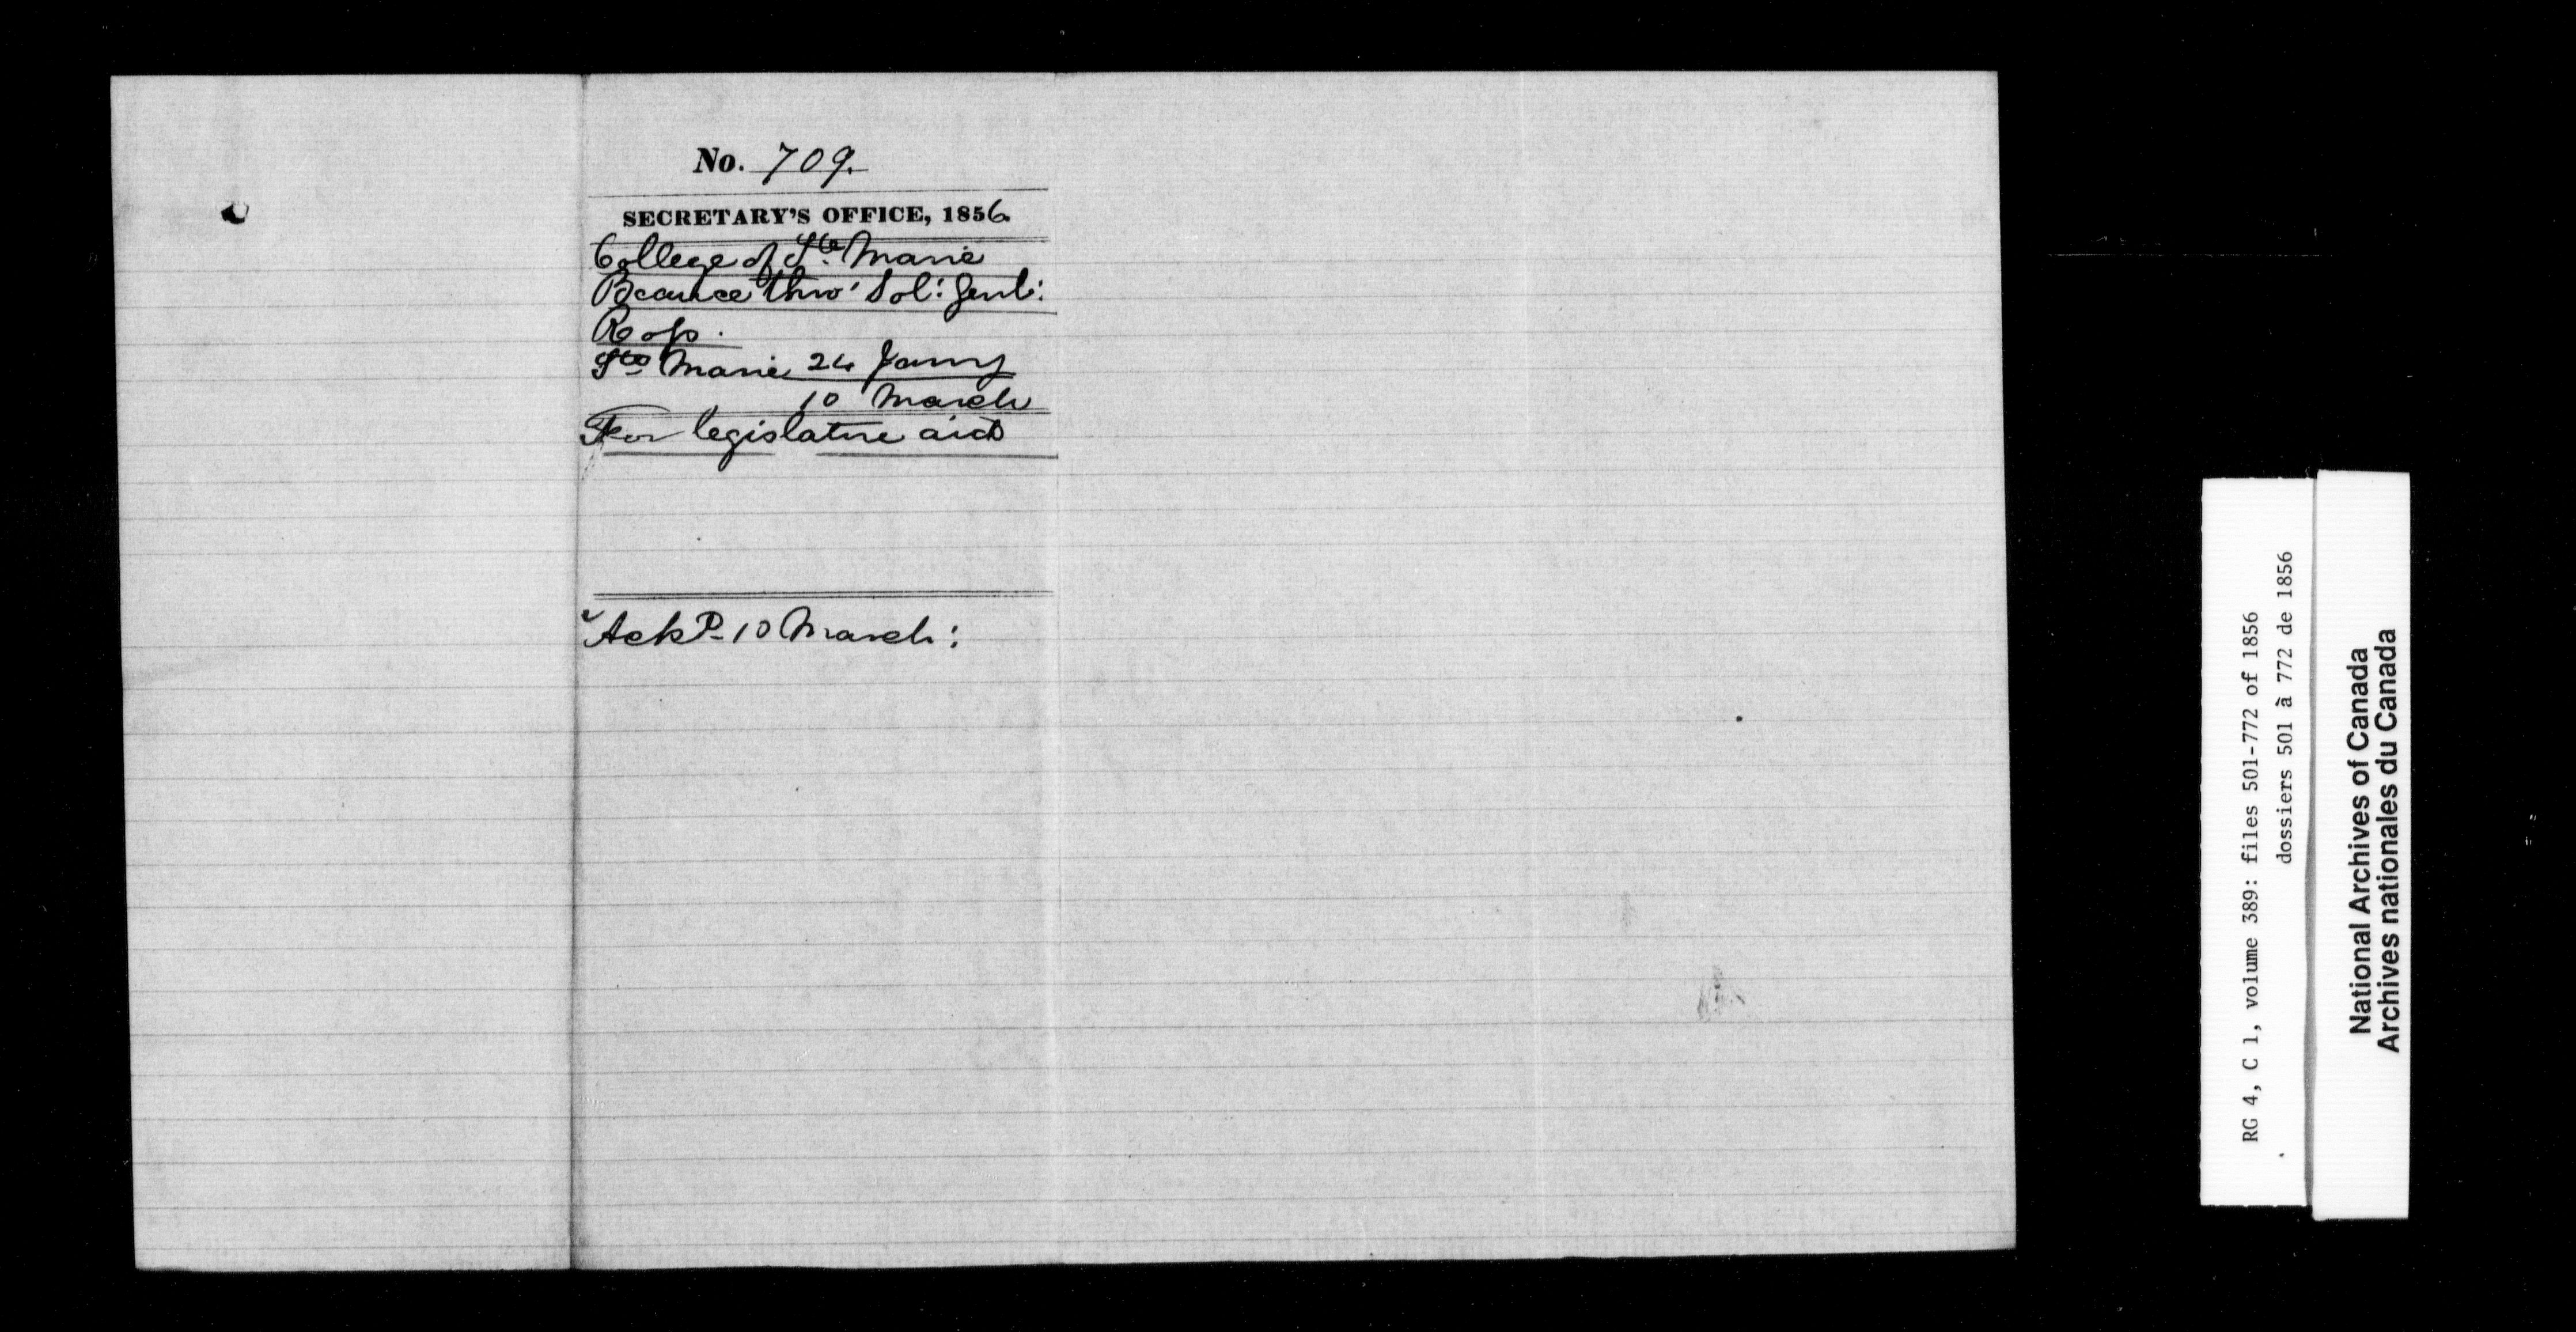 No. 709.
SECRETARY'S OFFICE, 1856.
College of Ste. Marie
Beauce thro' Sol: Genl:
Ross.
Ste Marie 24 Jany
10 March
For legislature aid
Ackd 10 March:
RG 4, C 1, volume 389: files 501-772 of 1856
dossiers 501 à 772 de 1856
National Archives of Canada
Archives nationales du Canada